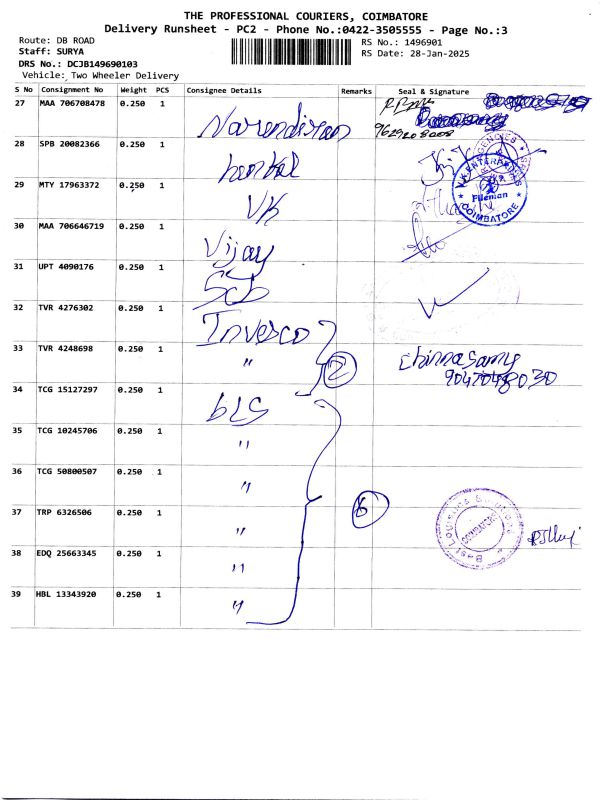 THE PROFESSIONAL COURIERS, COIMBATORE
Delivery Runsheet - PC2 - Phone No.:0422-3505555 - Page No.:3
Route: DB ROAD
RS No.: 1496901
Staff: SURYA
RS Date: 28-Jan-2025
DRS No.: DCJB149690103
Vehicle: Two Wheeler Delivery
S No Consignment No Weight PCS Consignee Details Remarks Seal & Signature
27 MAA 706708478 0.250 1 Narendiran
9629208008
28 SPB 20082366 0.250 1
29 MTY 17963372 0.250 1 VK
VK ENTERPRISES
Fileman
COIMBATORE
30 MAA 706646719 0.250 1 Vijay
31 UPT 4090176 0.250 1 Scb
32 TVR 4276302 0.250 1 Invesco
33 TVR 4248698 0.250 1 " 2 Chinnasamy
9047048030
34 TCG 15127297 0.250 1
35 TCG 10245706 0.250 1 "
36 TCG 50800507 0.250 1 "
37 TRP 6326506 0.250 1 " 6
COIMBATORE
38 EDQ 25663345 0.250 1 "
39 HBL 13343920 0.250 1 "